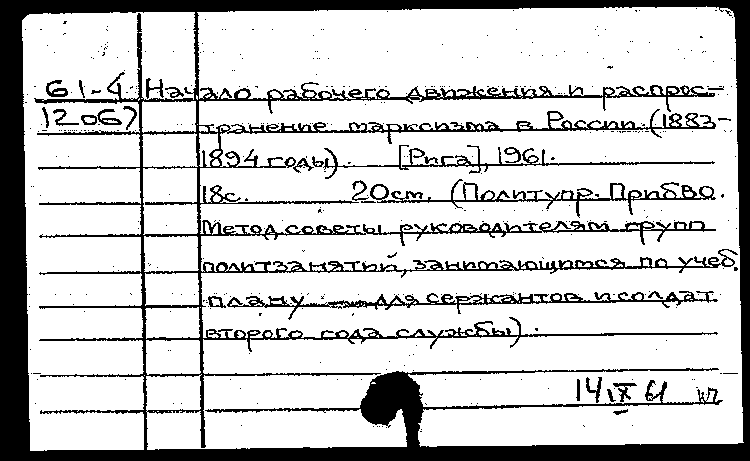 61-4 Начало рабочего движения и распрос-
12067 транение марксизма в России. (1883-
1894 годы). [Рига], 1961.
18с. 20см. (Политупр. ПрибВО.
Метод. советы руководителям групп
политзанятий, занимающимся по учеб.
плану для сержантов и солдат
второго года службы).
14 IX 61